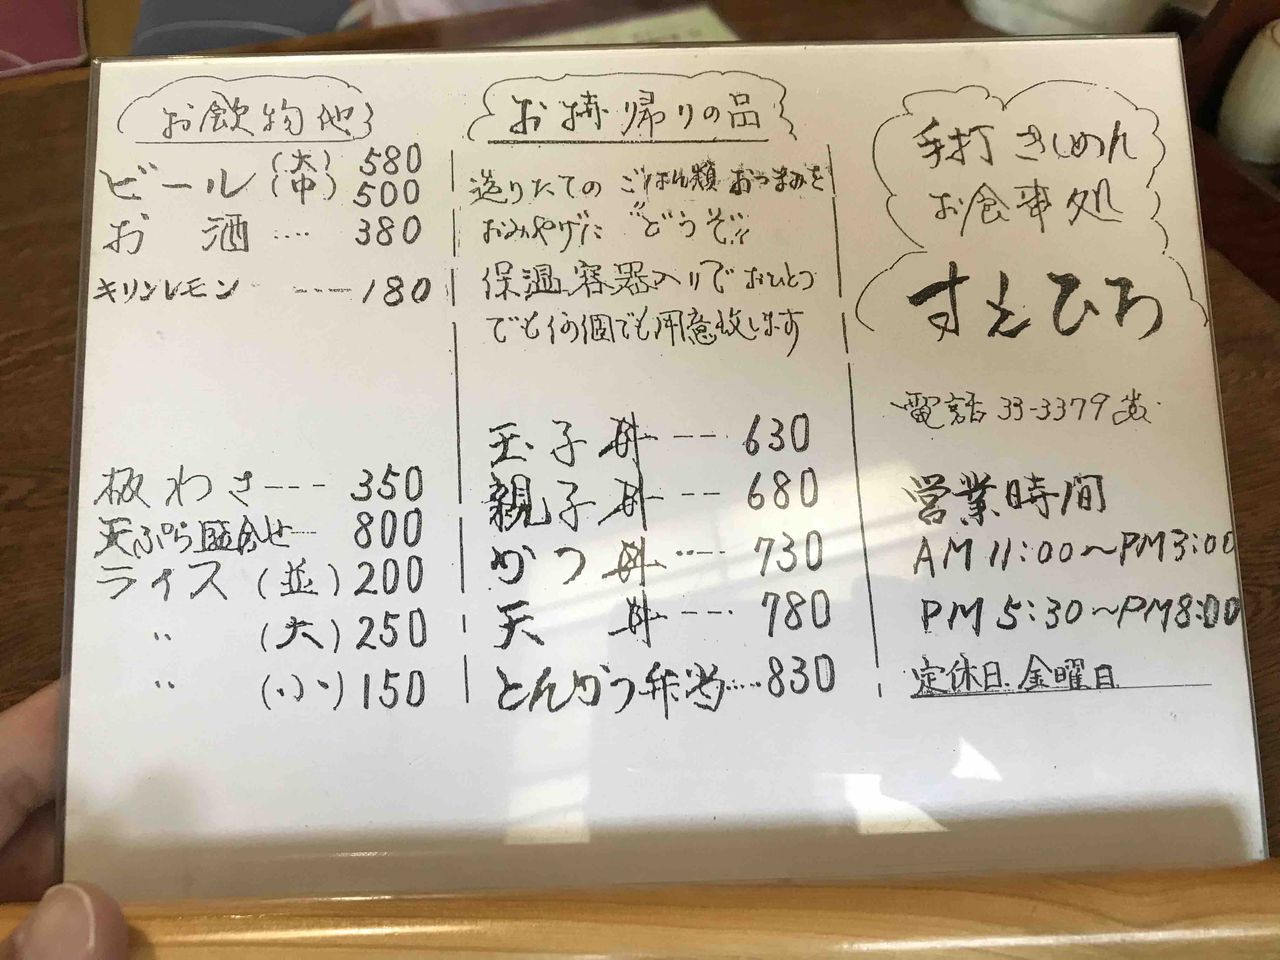 お飲物他
ビール (大) 580
(中) 500
お酒 .... 380
キリンレモン ---- 180
板わさ --- 350
天ぷら盛合せ --- 800
ライス (並) 200
〃 (大) 250
〃 (小) 150
お持帰りの品
造りたての ごはん類 おつまみを
おみやげに "どうぞ!!
保温容器入りで おひとつ
でも何個でも用意致します
玉子丼 --- 630
親子丼 --- 680
かつ丼 .... 730
天丼 --- 780
とんかつ弁当 .... 830
手打 きしめん
お食事処
すえひろ
電話 33-3379
営業時間
AM 11:00〜PM3:00
PM 5:30〜PM8:00
定休日 金曜日